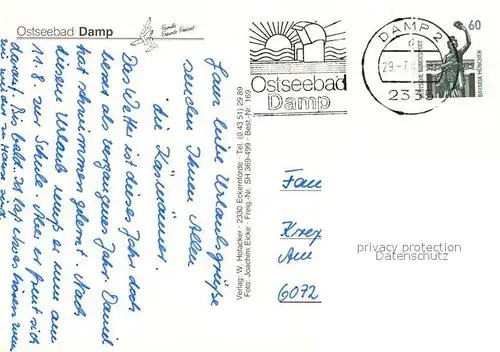 Ostseebad Damp
Familie
Freunde Freizeit
Ganz liebe Urlaubsgrüße
senden Ihnen Allen
die
Das Wetter ist dieses Jahr doch
besser als vergangenes Jahr. Daniel
hat schwimmen gelernt. Nach
diesen Urlaub muß er nun am
11.8. zur Schule. Aber er freut sich
darauf. Bis bald. Ich laß etwas hören wenn
wir wieder zu Hause sind.
Verlag: W. Hofacker · 2330 Eckernförde · Tel. (0 43 51) 29 89
Foto: Joachim Eicke · Freig.-Nr. SH 369-499 · Best.-Nr. 169
Ostseebad
Damp
DAMP 2
29.-7.
233
60
DEUTSCHE BUNDESPOST
BAVARIA MÜNCHEN
Am
6072
privacy protection
Datenschutz